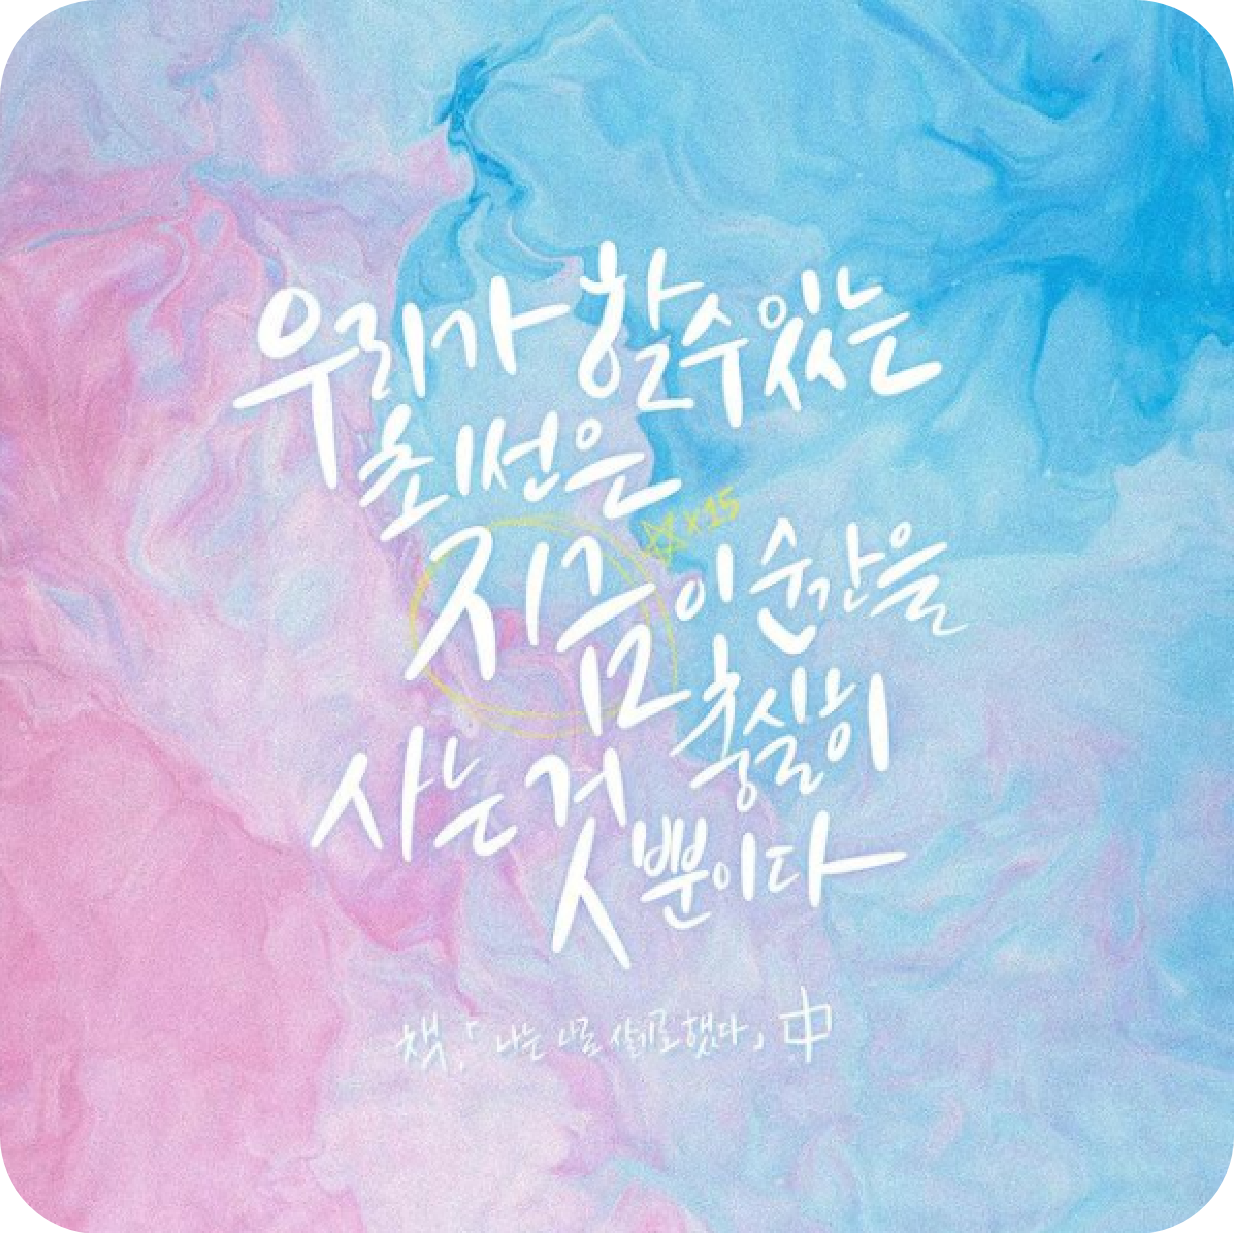 우리가 할 수 있는
최선은
☆×15
지금 이 순간을
충실히
사는 것
뿐이다
책, 「나는 나로 살기로 했다」 中